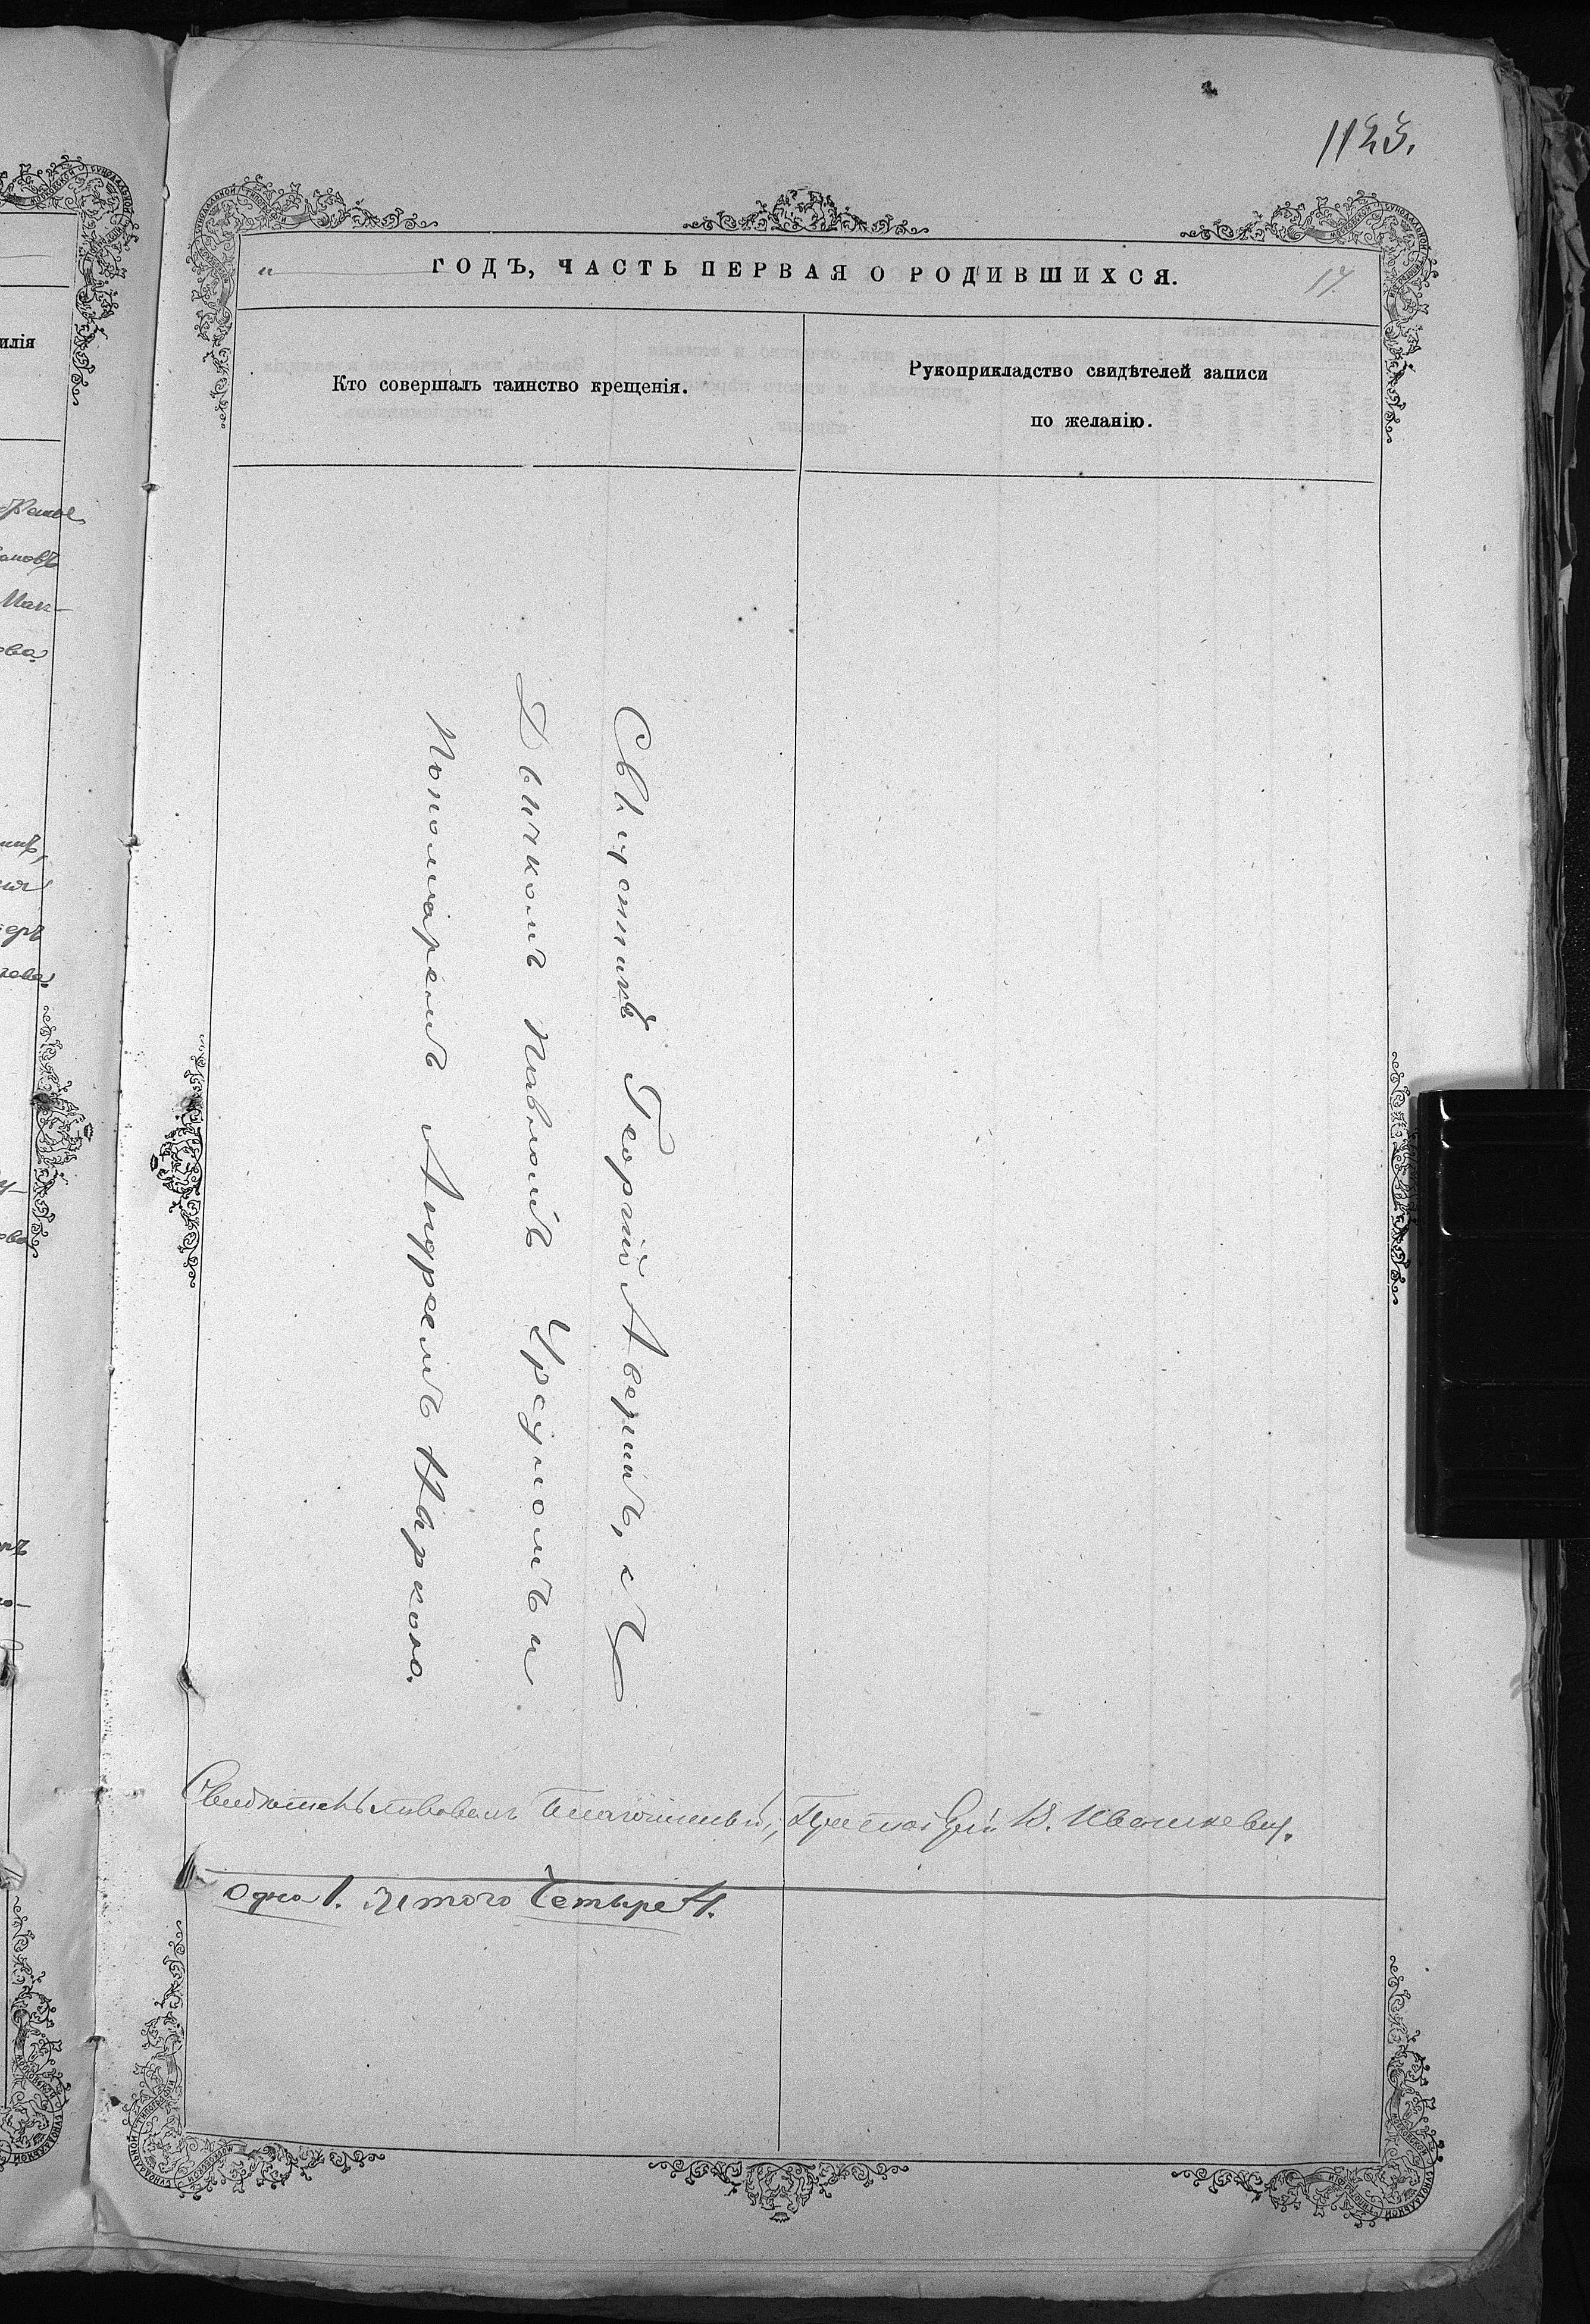 1123.
17
ГОДЪ, ЧАСТЬ ПЕРВАЯ О РОДИВШИХСЯ.
Кто совершалъ таинство крещенія.
Рукоприкладство свидѣтелей записи
по желанію.
Священникъ Георгій Аверинъ, съ
Дьячкомъ Павломъ Урсуломъ и
Пономаремъ Андреемъ Няркою.
Свидѣтельствовалъ Благочинный, Протоіерей Ивашкевич.
Одно 1. Итого Четыре 4.
илія